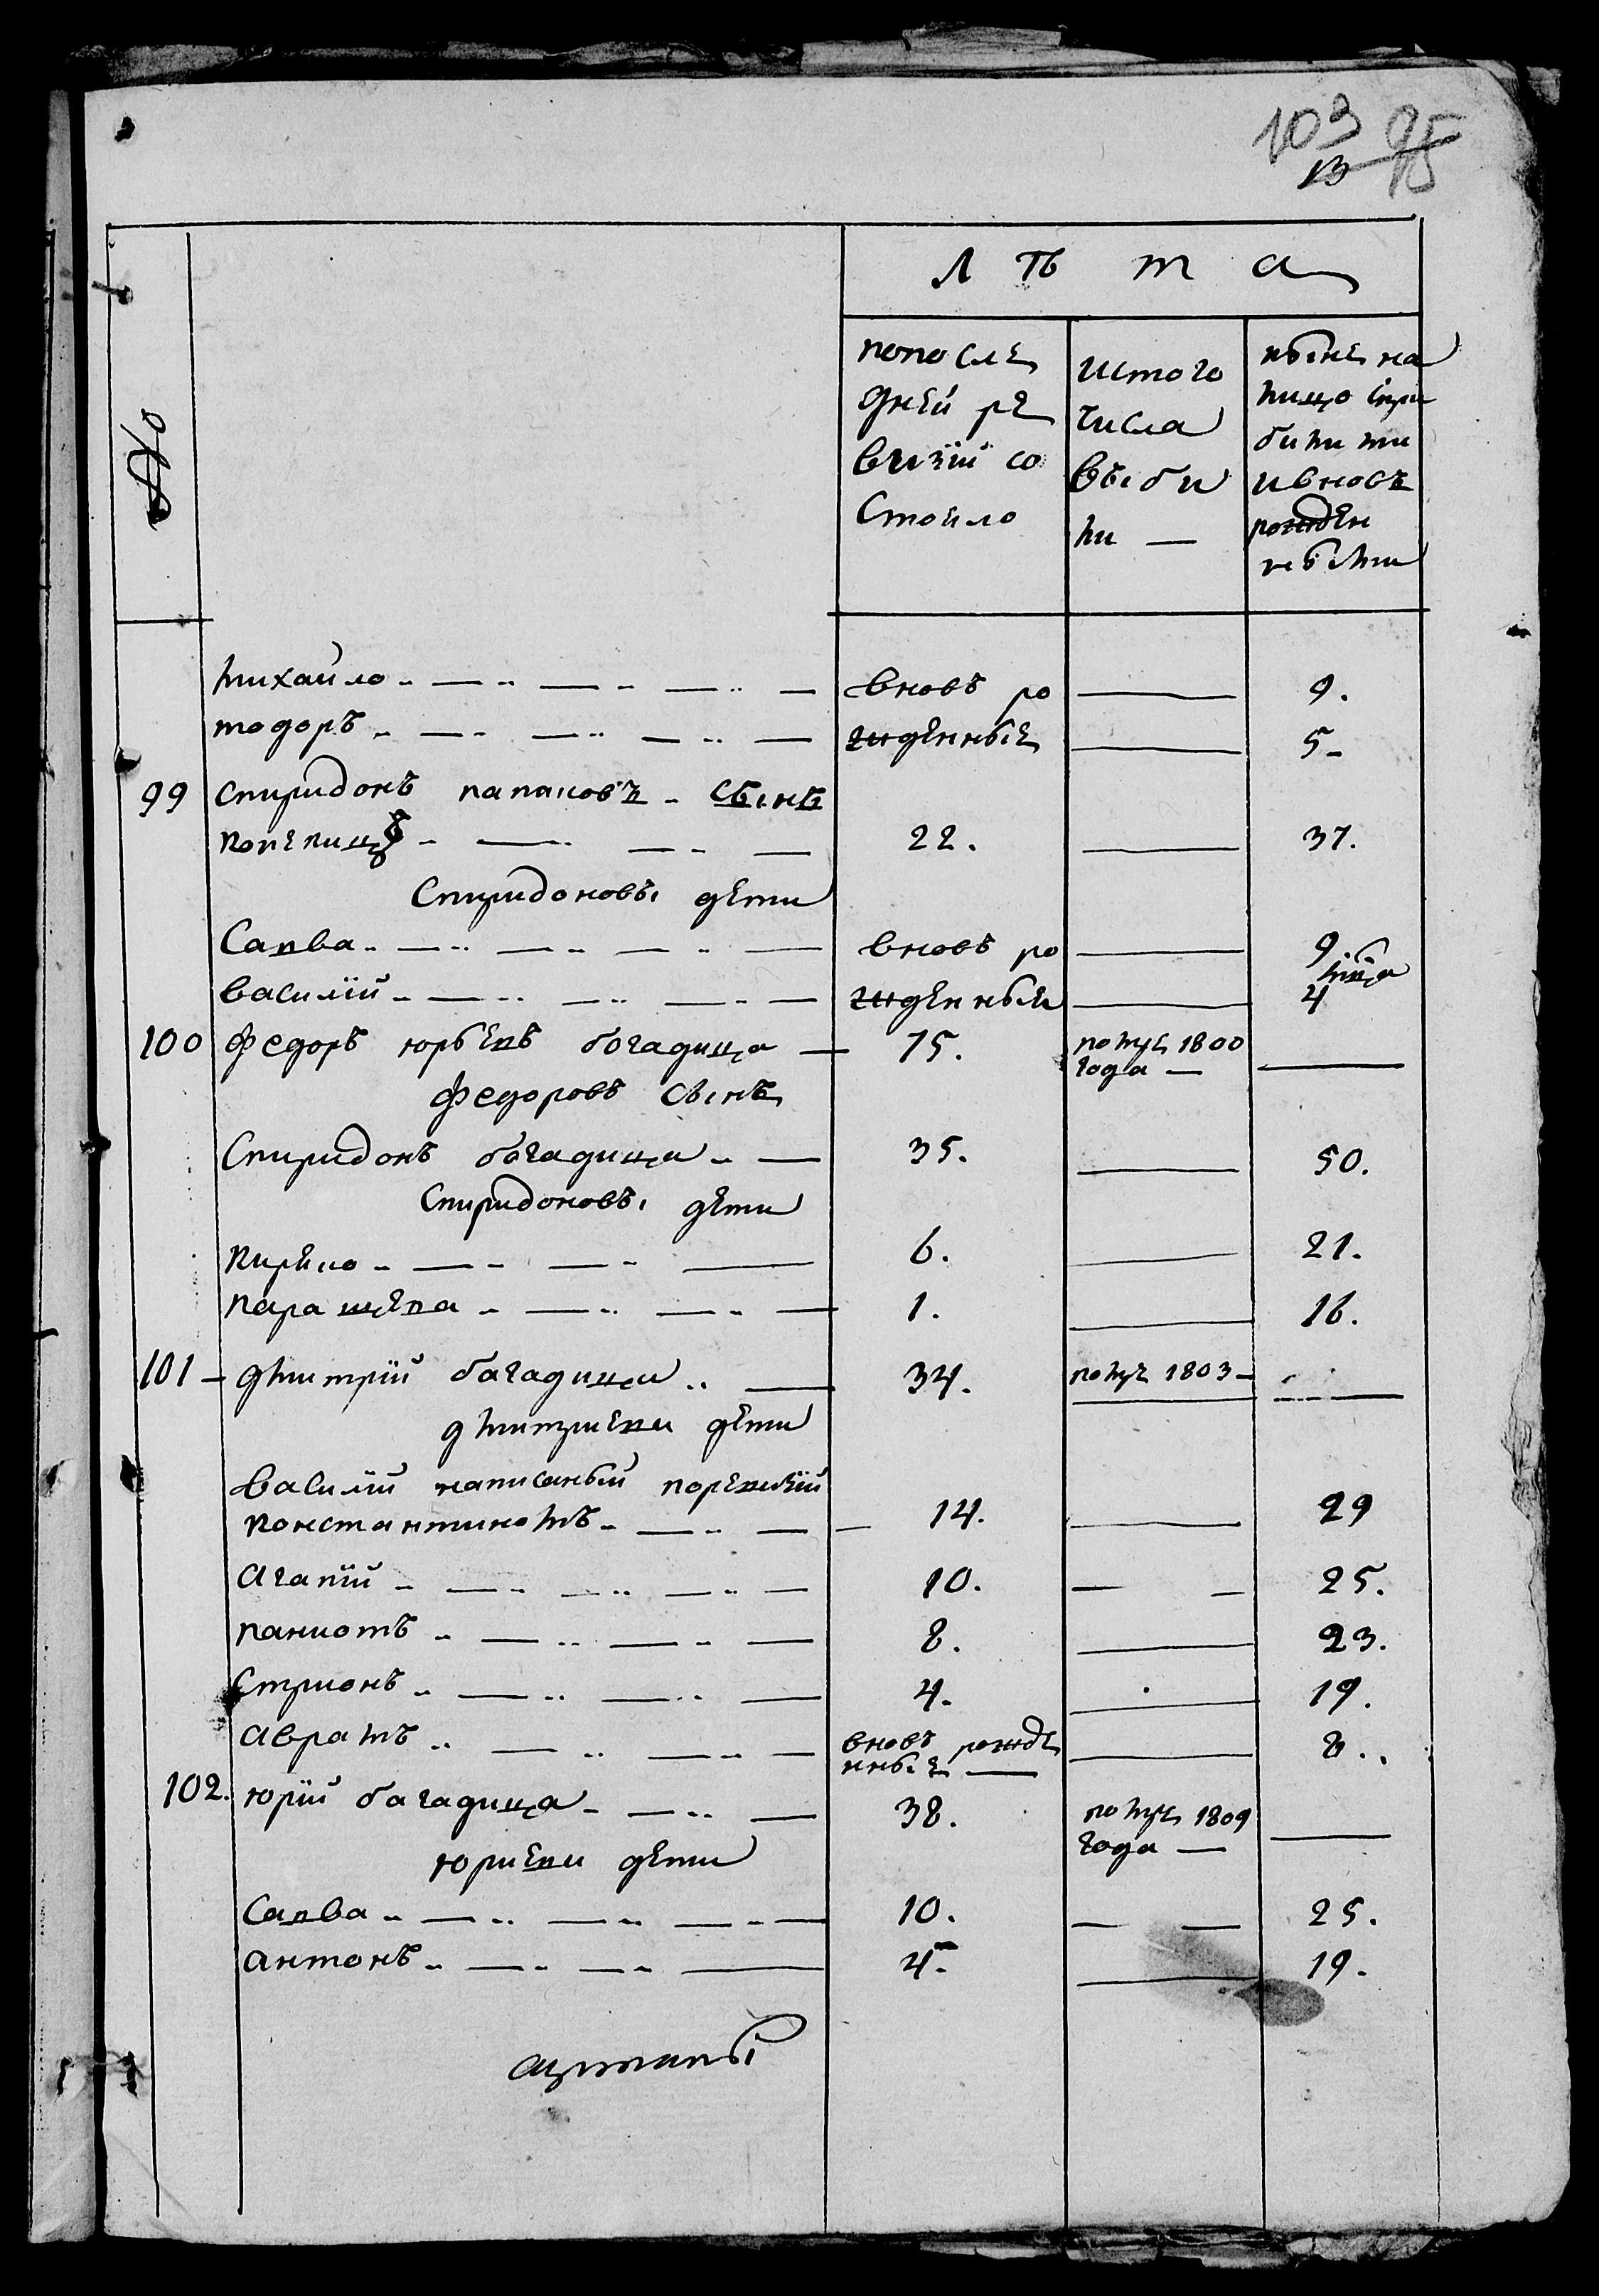 103 95
13 15
Лѣта
№
попосле
дней ре
визій со
стоило
истого
числа
выбы
ли —
ныне на
лицо с при
были ми
и вновъ
рожден
ными
михайло вновъ ро — 9.
тодоръ жденные — 5
99 спиридонъ папаковъ сынъ
22. — 37.
Спиридоновы дети
Савва вновъ ро — 9.
василій жденные — 4 мца
100 федоръ юрьевъ богадица — 75. помре 1800
года —
федоровъ сынъ
Спиридонъ богадица 35. — 50.
Спиридоновы дети
кирьяко 6. — 21.
паращева 1. — 16.
101 — дмитрій богадица 34. помре 1803 —
дмитриевы дети
василій написаный поревизій
константиномъ 14. — 29
агапій 10. — 25.
паниотъ 8. — 23.
Стрионъ 4. — 19.
аврамъ вновъ рожде
нные — 8.
102. юрій багадица 38. помре 1809
года —
юриевы дети
Савва 10. — 25.
антонъ 4. — 19.